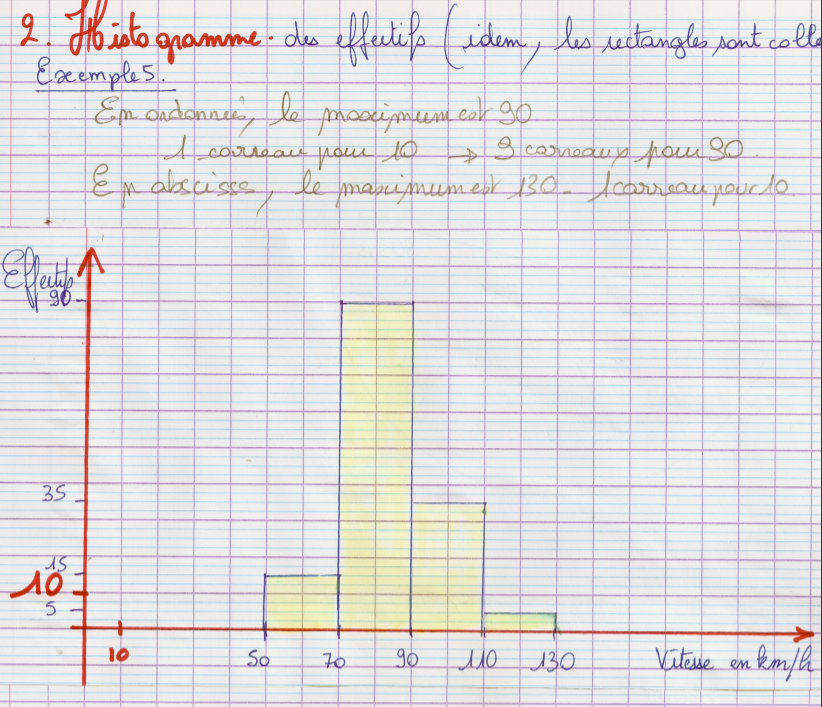 2. Histogramme. des effectifs (idem, les rectangles sont colle
Exemple 5.
En ordonnée, le maximum est 90
1 carreau pour 10 → 9 carreaux pour 90.
En abscisse, le maximum est 130 - 1 carreau pour 10.
Effectifs
90
35
15
10
5
10 50 70 90 110 130 Vitesse en km/h